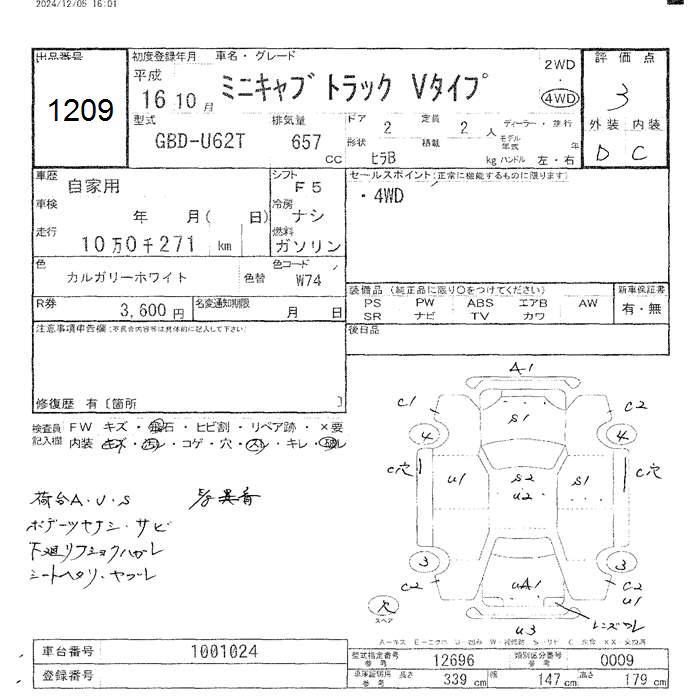 2024/12/05 16:01
出品番号
1209
初度登録年月 車名・グレード
平成
16 10 月
ミニキャブ トラック Vタイプ
2WD
・
4WD
評 価 点
3
外装 内装
D C
型式
GBD-U62T
排気量
657
CC
ドア 2 定員 2 人
形状 積載
ヒラB kg
ディーラー・並行
モデル年式 年
ハンドル 左・右
車歴
自家用
シフト
F5
車検
年 月( 日)
冷房
ナシ
走行
10万0千271 km
燃料
ガソリン
色
カルガリーホワイト
色替
色コード
W74
R券
3,600 円
名変通知期限
月 日
セールスポイント(正常に機能するものに限ります)
・4WD
装備品 (純正品に限り○をつけてください)
PS PW ABS エアB AW
SR ナビ TV カワ
新車保証書
有・無
後日品
注意事項申告欄(不具合内容等は具体的に記入して下さい)
修復歴 有〔箇所 〕
検査員記入欄
FW キズ・飛石・ヒビ割・リペア跡・×要
内装 キズ・汚レ・コゲ・穴・スレ・キレ・破レ
荷台A・U・S
ボデーツヤナシ・サビ
下廻リフショクハガレ
シートヘタリ・ヤブレ
A1
C1
S1
C2
4
4
C穴
U1
S2
U2
S1
C穴
3
3
C2
UA1
C2
U1
スペア
U3
A-キズ E-エクボ U-凹み W-補修跡 S-サビ C-腐食 ××-交換済
車台番号 1001024
登録番号
型式指定番号 参考 12696
類別区分番号 参考 0009
車庫証明用 参考 長さ 339 cm 幅 147 cm 高さ 179 cm